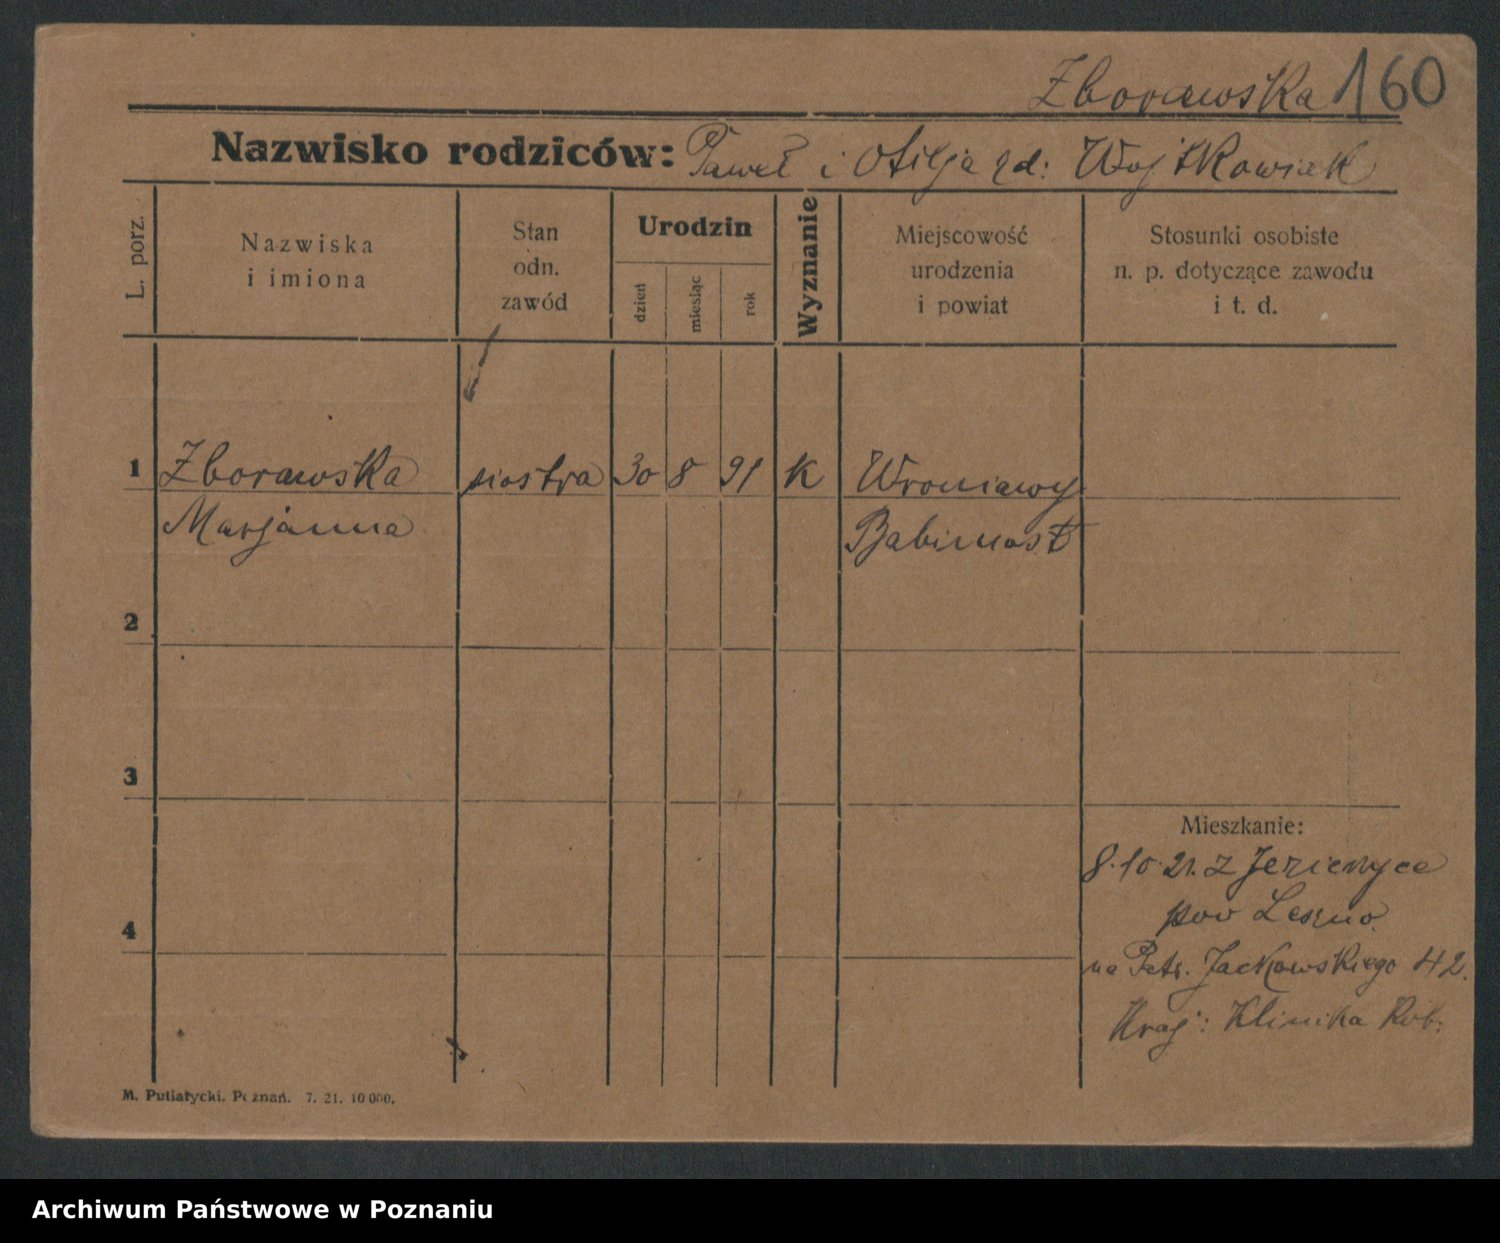 Zborawska 160
Nazwisko rodziców: Paweł i Otilja zd: Wojtkowiak
L. porz.
Nazwiska
i imiona
Stan
odn.
zawód
Urodzin
dzień
miesiąc
rok
Wyznanie
Miejscowość
urodzenia
i powiat
Stosunki osobiste
n. p. dotyczące zawodu
i t. d.
1 Zborawska siostra 30 8 91 K Wroniawy
Marjanna Babimost
2
3
Mieszkanie:
8.10.21. z Jezierzyce
4
pow Leszno
na Patr. Jackowskiego 42.
Klinika Rob:
M. Putiatycki. Poznań. 7. 21. 10 000.
Archiwum Państwowe w Poznaniu